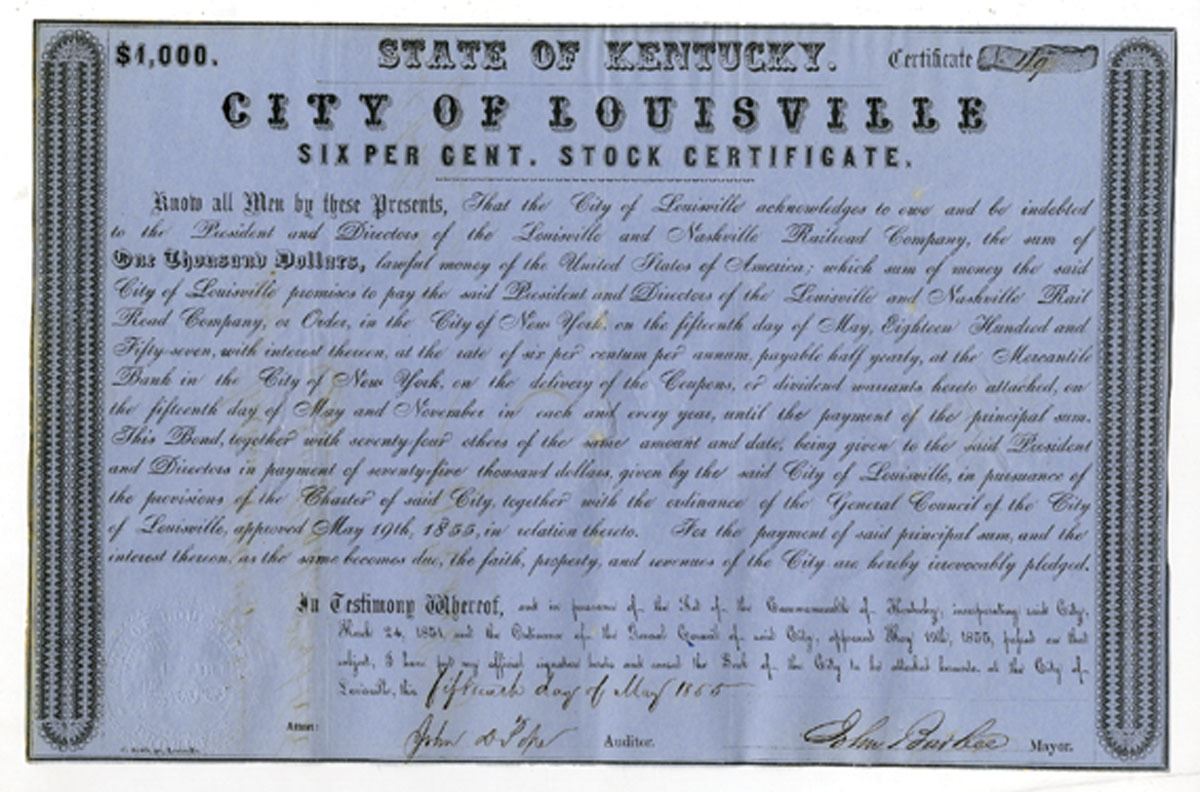 $1,000. STATE OF KENTUCKY. Certificate 119
CITY OF LOUISVILLE
SIX PER CENT. STOCK CERTIFICATE.
Know all Men by these Presents, That the City of Louisville acknowledges to owe and be indebted
to the President and Directors of the Louisville and Nashville Railroad Company, the sum of
One Thousand Dollars, lawful money of the United States of America; which sum of money the said
City of Louisville promises to pay the said President and Directors of the Louisville and Nashville Rail
Road Company, or Order, in the City of New York, on the fifteenth day of May, Eighteen Hundred and
Fifty-seven, with interest thereon, at the rate of six per centum per annum, payable half yearly, at the Mercantile
Bank in the City of New York, on the delivery of the Coupons, or dividend warrants hereto attached, on
the fifteenth day of May and November in each and every year, until the payment of the principal sum.
This Bond, together with seventy-four others of the same amount and date, being given to the said President
and Directors in payment of seventy-five thousand dollars, given by the said City of Louisville, in pursuance of
the provisions of the Charter of said City, together with the ordinance of the General Council of the City
of Louisville, approved May 19th, 1855, in relation thereto. For the payment of said principal sum, and the
interest thereon, as the same becomes due, the faith, property, and revenues of the City are hereby irrevocably pledged.
In Testimony Whereof, and in pursuance of the Act of the Commonwealth of Kentucky, incorporating said City,
March 24, 1851, and the Ordinance of the General Council of said City, approved May 19th, 1855, passed on that
subject, I have put my official signature hereto and caused the Seal of the City to be attached hereunto, at the City of
Louisville, this fifteenth day of May 1855
Attest: John D Pope Auditor. John Barbee Mayor.